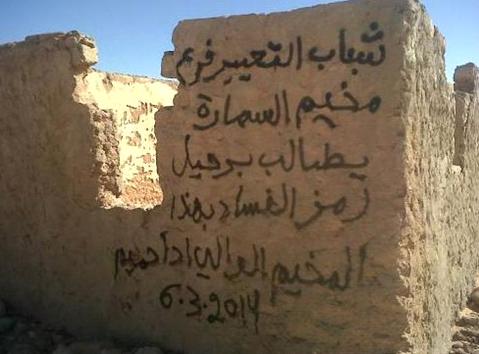 شباب التغيير فرع
مخيم السمارة
يطالب برحيل
رمز الفساد بهذا
المخيم الوالي ادا حميم
6.3.2014